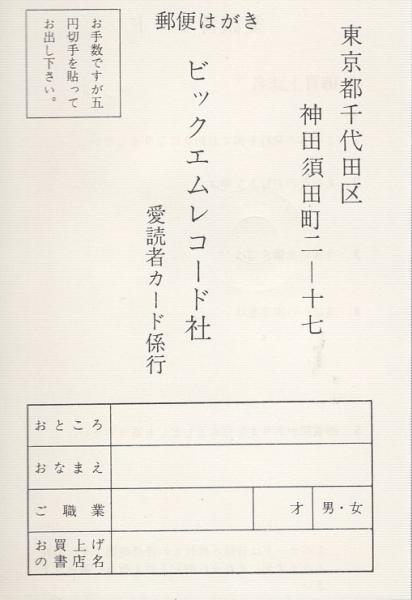 郵便はがき
東京都千代田区
神田須田町二―十七
ビックエムレコード社
愛読者カード係行
お手数ですが五
円切手を貼って
お出し下さい。
おところ
おなまえ
ご職業 才 男・女
お買上げ
の書店名